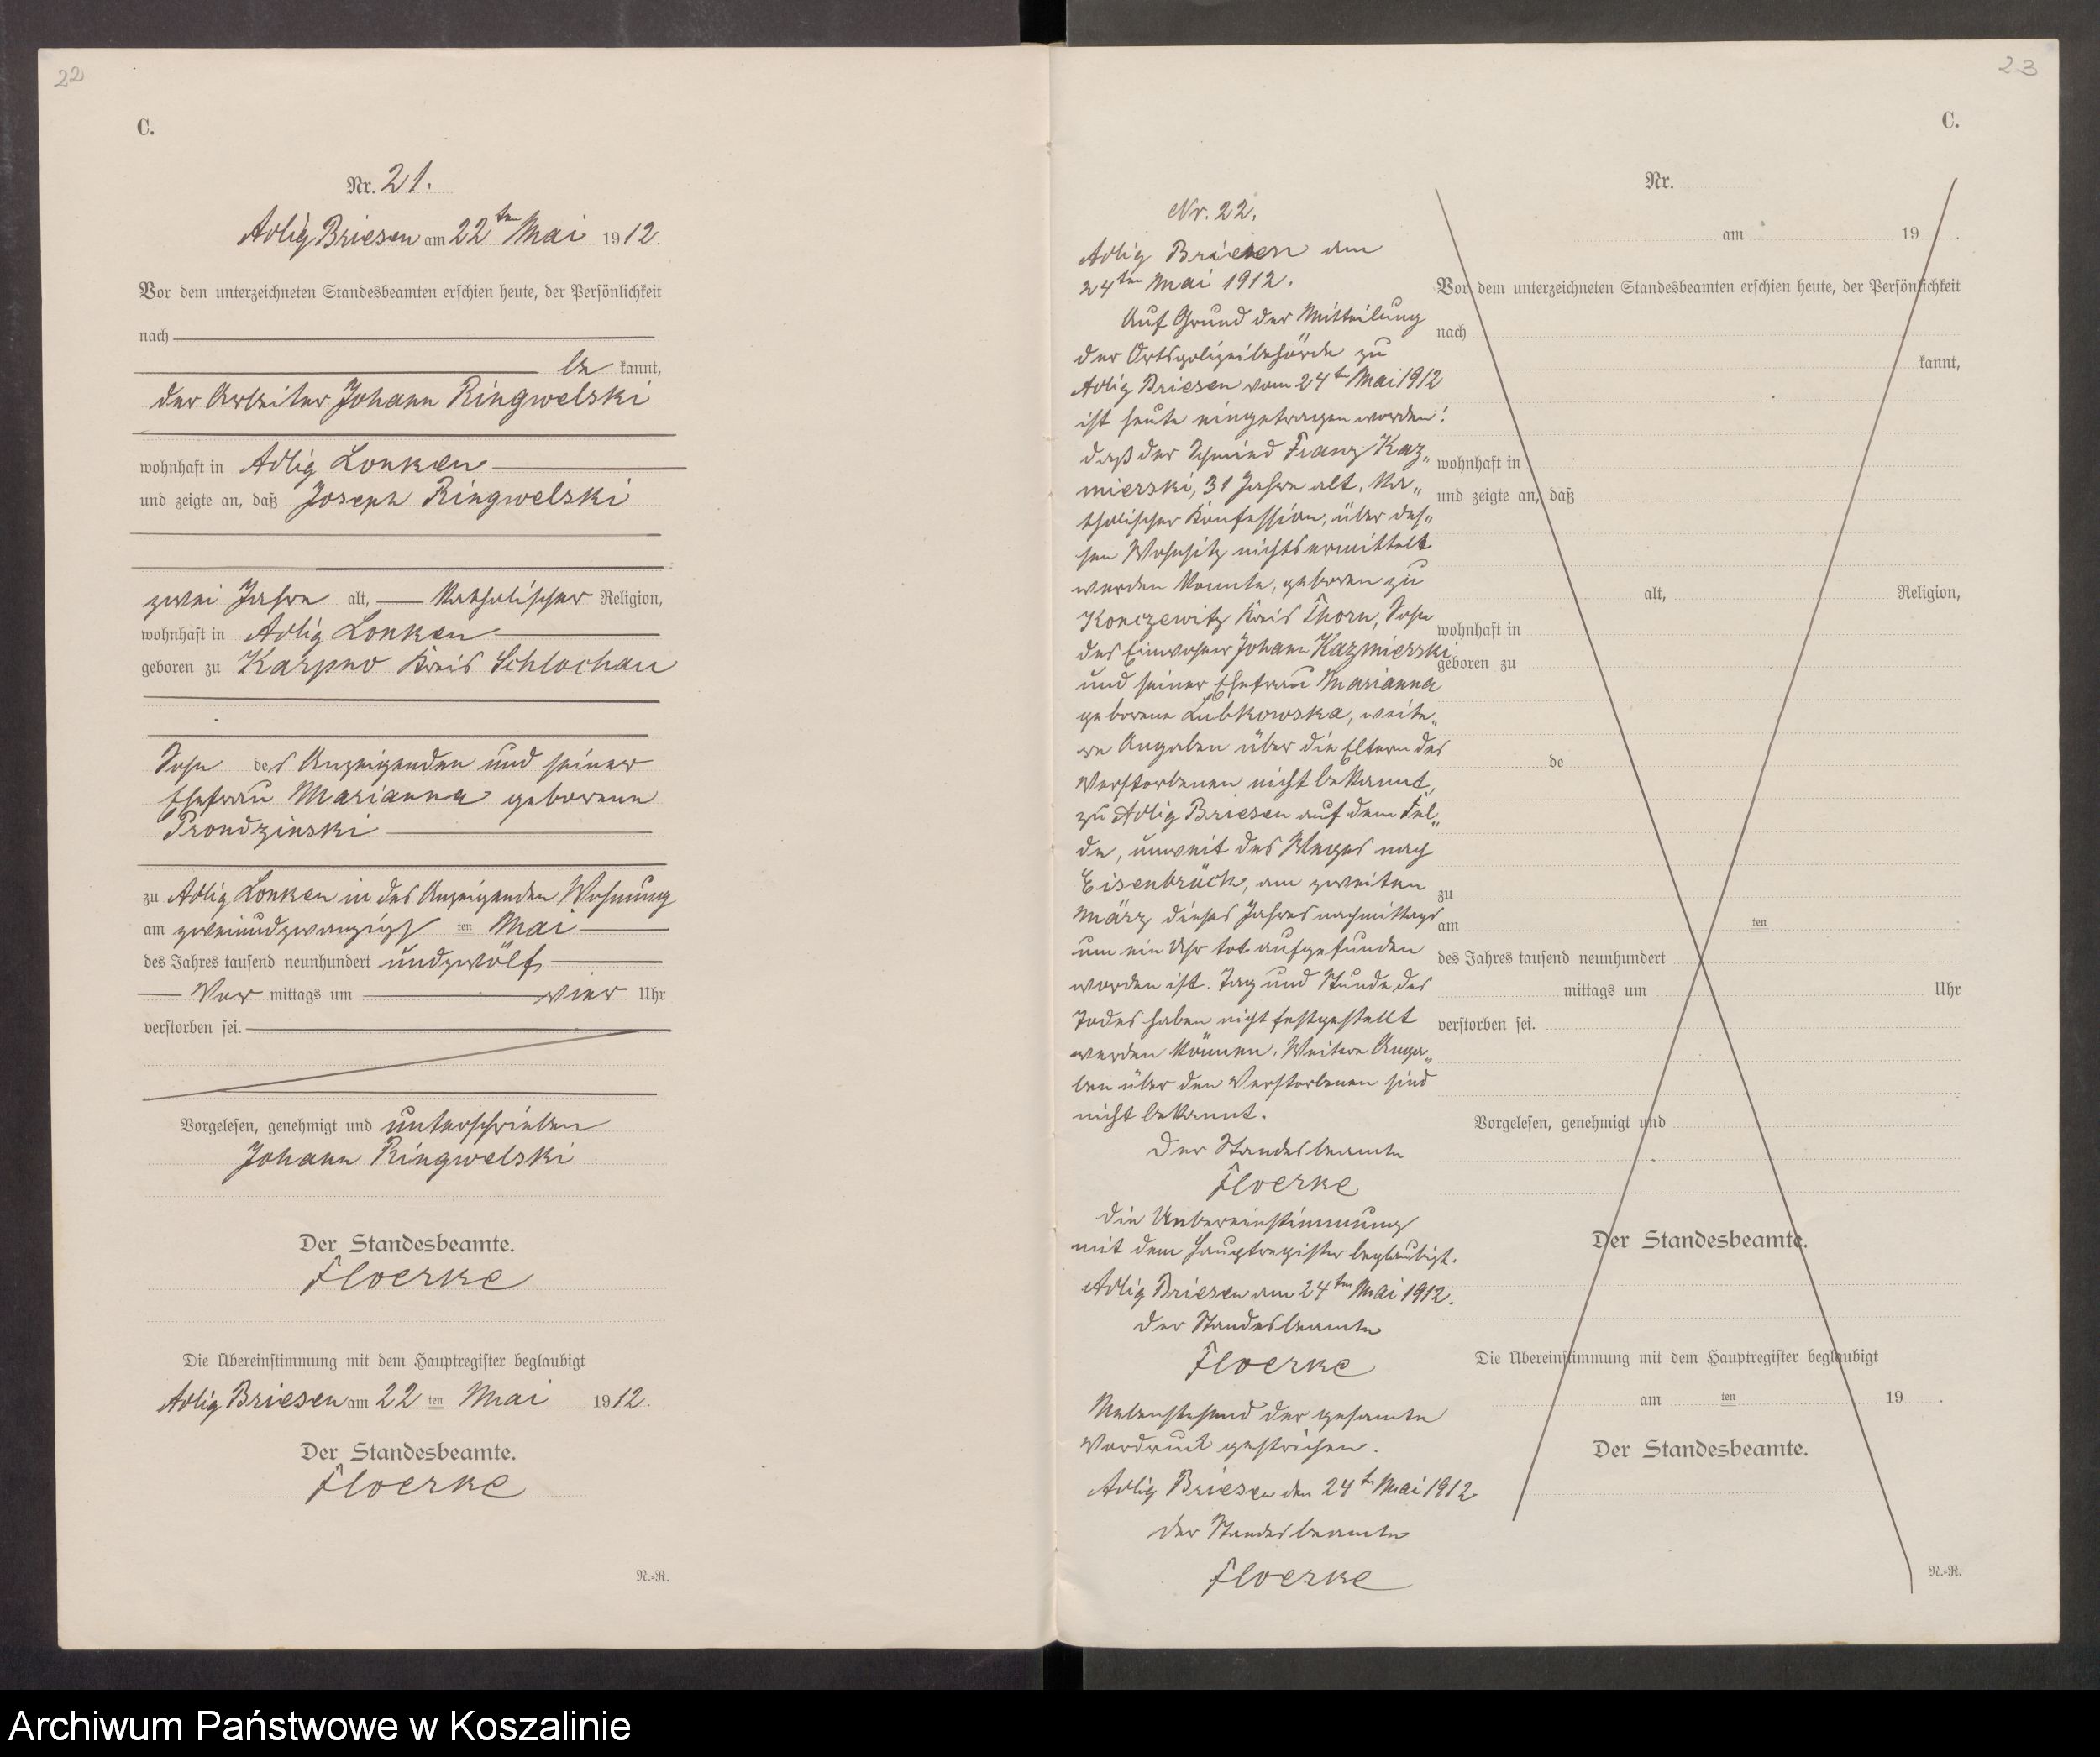 22
C.
Nr. 21.
Adlig Briesen am 22ten Mai 1912.
Vor dem unterzeichneten Standesbeamten erschien heute, der Persönlichkeit
nach
be kannt,
der Arbeiter Johann Ringwelski
wohnhaft in Adlig Lonken
und zeigte an, daß Joseph Ringwelski
zwei Jahre alt, katholischer Religion,
wohnhaft in Adlig Lonken
geboren zu Karpno Kreis Schlochau
Sohn des Anzeigenden und seiner
Ehefrau Marianna geborene
Prondzinski
zu Adlig Lonken in des Anzeigenden Wohnung
am zweiundzwanzigsten Mai
des Jahres tausend neunhundert undzwölf
Vor mittags um vier Uhr
verstorben sei.
Vorgelesen, genehmigt und unterschrieben
Johann Ringwelski
Der Standesbeamte.
Floerke
Die Übereinstimmung mit dem Hauptregister beglaubigt
Adlig Briesen am 22 ten Mai 1912.
Der Standesbeamte.
Floerke
N.-R.
23
C.
Nr. 22.
Adlig Briesen am
24ten Mai 1912.
Auf Grund der Mitteilung
der Ortspolizeibehörde zu
Adlig Briesen vom 24ten Mai 1912
ist heute eingetragen worden:
daß der Schmied Franz Kaz„
mierski, 31 Jahre alt, ka„
tholischer Konfession, über des„
sen Wohnsitz nichts ermittelt
werden konnte, geboren zu
Konczewitz Kreis Thorn, Sohn
des Einwohner Johann Kazmierski
und seiner Ehefrau Marianna
geborene Lubkowska, weite„
re Angaben über die Eltern des
Verstorbenen nicht bekannt,
zu Adlig Briesen auf dem Fel„
de, unweit des Weges nach
Eisenbrück, am zweiten
März dieses Jahres nachmittags
um ein Uhr tot aufgefunden
worden ist. Tag und Stunde des
Todes haben nicht festgestellt
werden können. Weitere Anga„
ben über den Verstorbenen sind
nicht bekannt.
Der Standesbeamte
Floerke
Die Uebereinstimmung
mit dem Hauptregister beglaubigt.
Adlig Briesen am 24ten Mai 1912.
Der Standesbeamte
Floerke
Nebenstehend der gesamte
Vordruck gestrichen.
Adlig Briesen den 24ten Mai 1912
Der Standesbeamte
Floerke
Nr.
am 19 .
Vor dem unterzeichneten Standesbeamten erschien heute, der Persönlichkeit
nach
kannt,
wohnhaft in
und zeigte an, daß
alt, Religion,
wohnhaft in
geboren zu
de
zu
am ten
des Jahres tausend neunhundert
mittags um Uhr
verstorben sei.
Vorgelesen, genehmigt und
Der Standesbeamte.
Die Übereinstimmung mit dem Hauptregister beglaubigt
am ten 19 .
Der Standesbeamte.
N.-R.
Archiwum Państwowe w Koszalinie